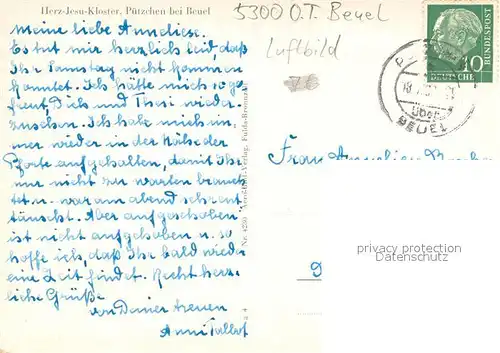 Herz-Jesu-Kloster, Pützchen bei Beuel
5300 O.T. Beuel
Luftbild
Meine liebe Anneliese.
Es tut mir herzlich leid, daß
Ihr Samstag nicht kommen
konntet. Ich hätte mich so ge-
freut, Dich und Thesi wieder-
zusehen. Ich habe mich im-
mer wieder in der Nähe der
Pforte aufgehalten, damit Ihr
nur nicht zu warten brauch-
tet u. war am abend sehr ent-
täuscht. Aber aufgeschoben
ist nicht aufgehoben u. so
hoffe ich, daß Ihr bald wieder
eine Zeit findet. Recht herz-
liche Grüße
von Deiner treuen
Nr. 4260
10
DEUTSCHE
BUNDESPOST
über
BEUEL
Frau
privacy protection